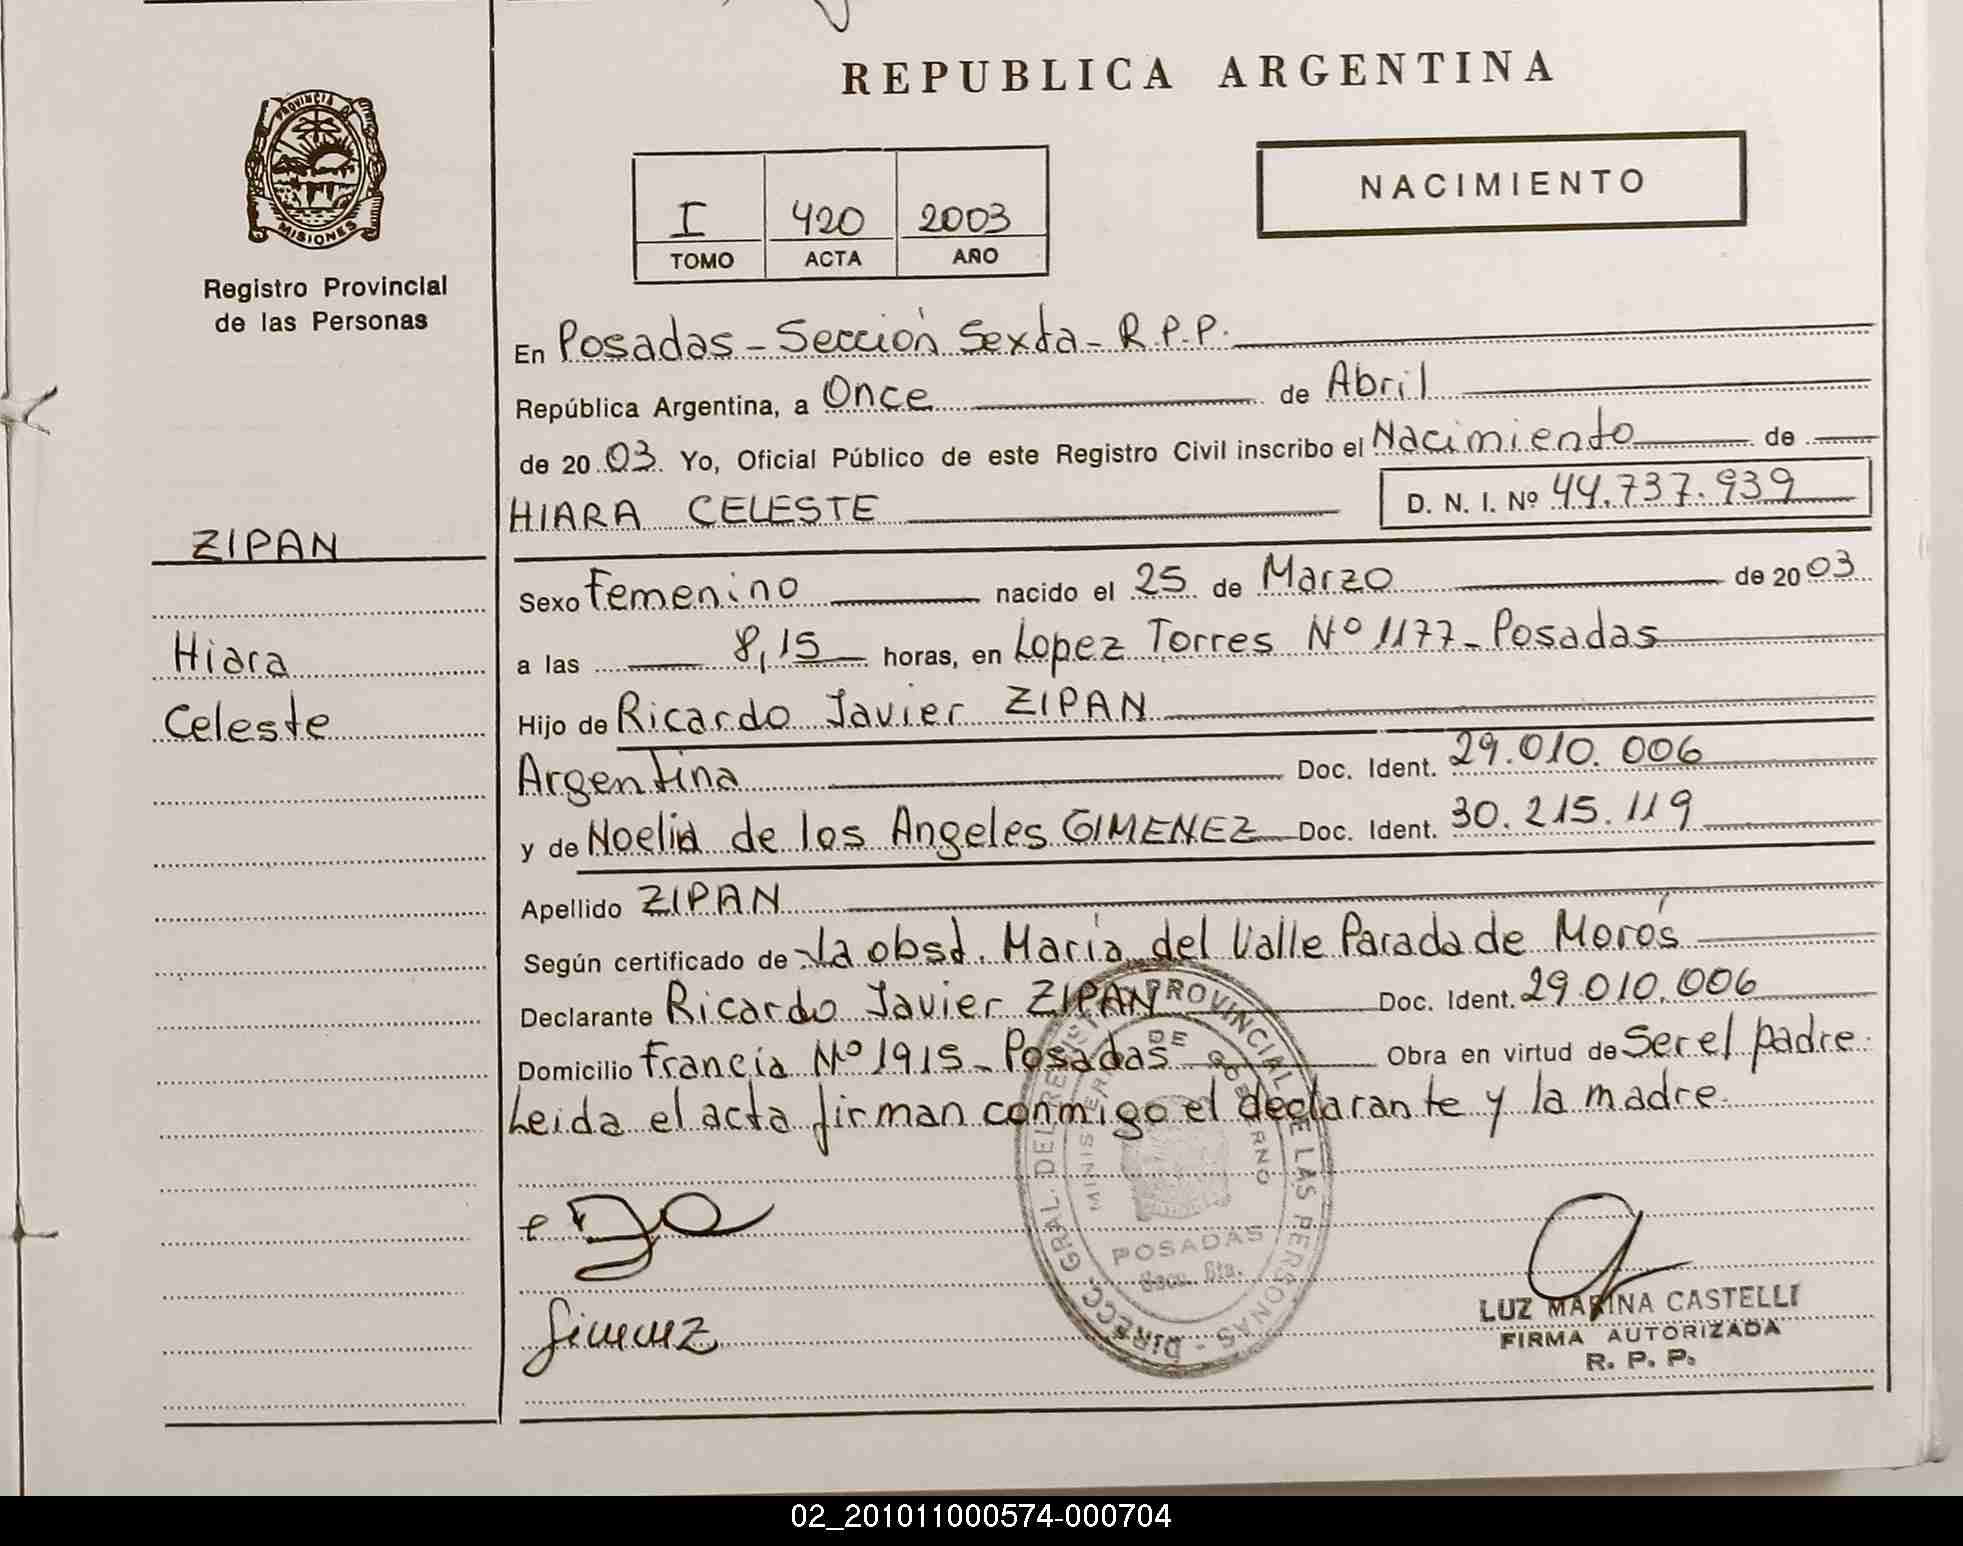 REPUBLICA ARGENTINA
PROVINCIA DE
MISIONES
Registro Provincial
de las Personas
I 420 2003
TOMO ACTA AÑO
NACIMIENTO
En Posadas - Sección Sexta - R.P.P.
República Argentina, a Once de Abril
de 2003. Yo, Oficial Público de este Registro Civil inscribo el Nacimiento de
HIARA CELESTE D. N. I. Nº 44.737.939
ZIPAN
Hiara
Celeste
Sexo Femenino nacido el 25 de Marzo de 2003
a las 8,15 horas, en Lopez Torres Nº 1177 - Posadas
Hijo de Ricardo Javier ZIPAN
Argentina Doc. Ident. 29.010.006
y de Noelia de los Angeles GIMENEZ Doc. Ident. 30.215.119
Apellido ZIPAN
Según certificado de - la obst. María del Valle Parada de Morós
Declarante Ricardo Javier ZIPAN Doc. Ident. 29.010.006
Domicilio Francia Nº 1915 - Posadas Obra en virtud de Ser el padre.
Leida el acta firman conmigo el declarante y la madre.
DIRECC. GRAL. DEL REGIST. PROVINCIAL DE LAS PERSONAS -
MINISTER. DE GOBIERNO
POSADAS
Secc. 6ta.
Gimenez
LUZ MARINA CASTELLI
FIRMA AUTORIZADA
R. P. P.
02_201011000574-000704